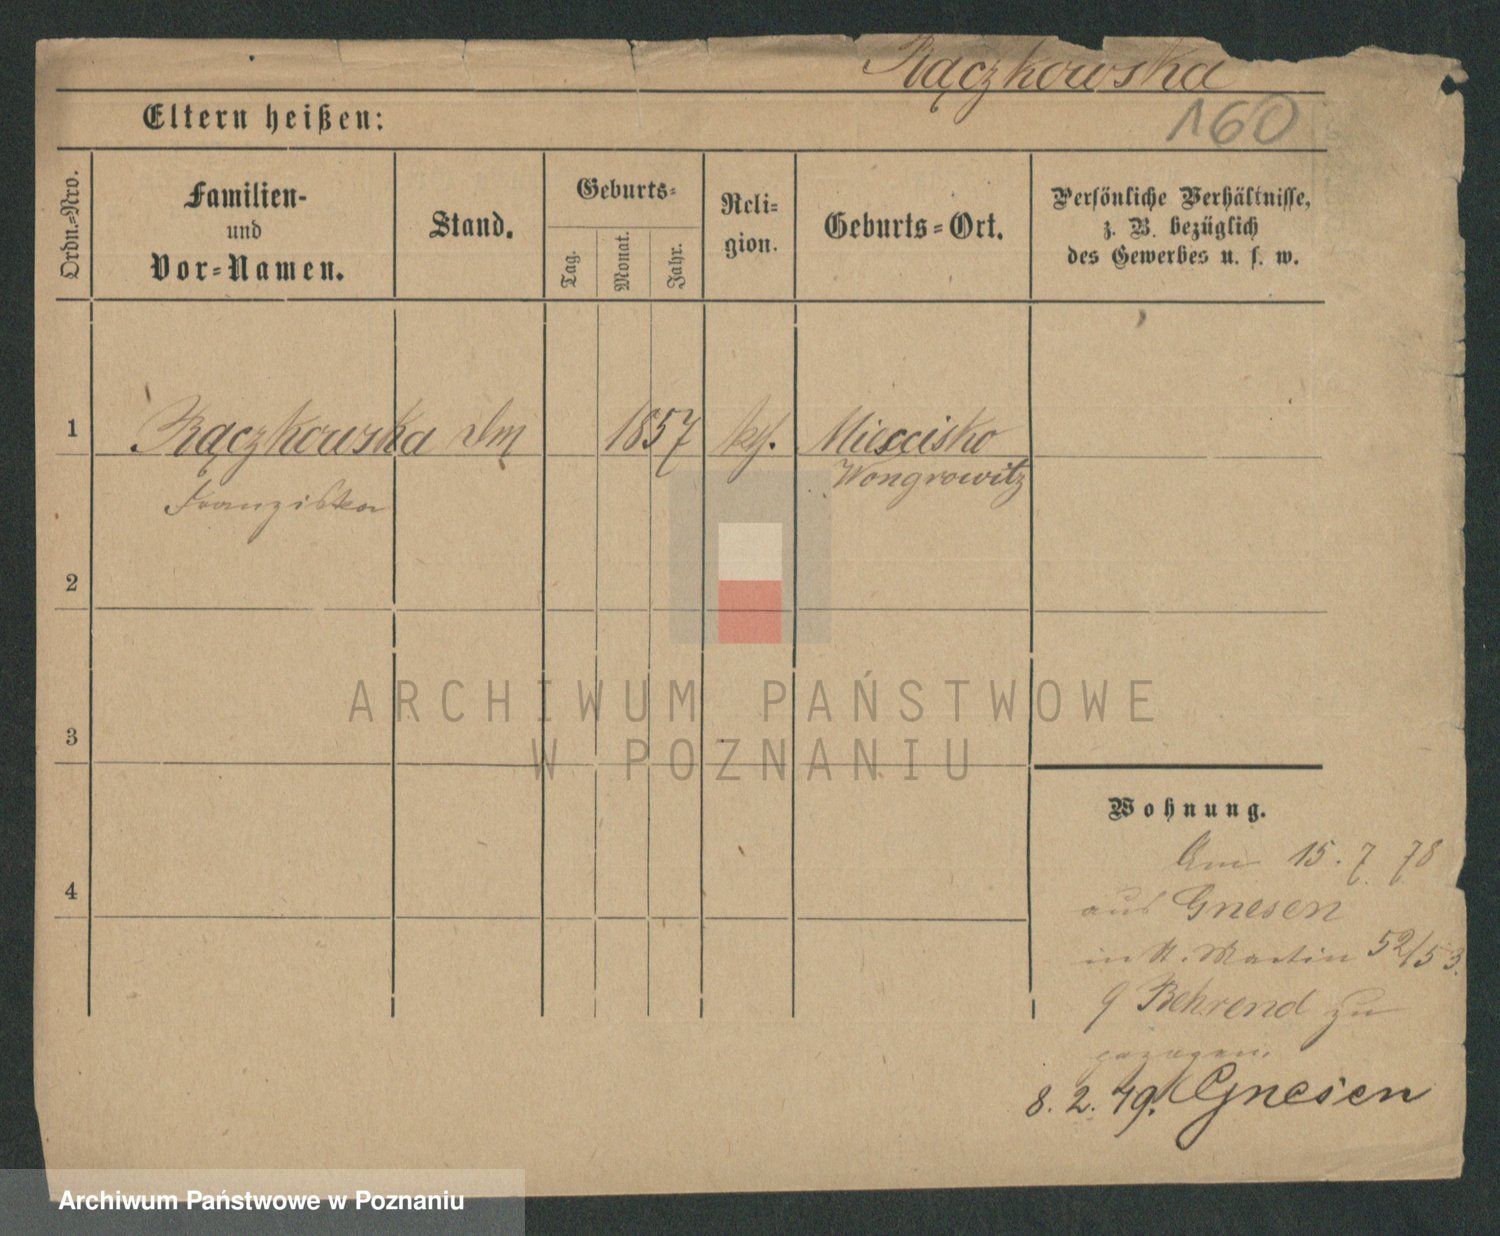 Rączkowska
160
Eltern heißen:
Ordn.-Nro.
Familien-
und
Vor-Namen.
Stand.
Geburts-
Tag.
Monat.
Jahr.
Reli-
gion.
Geburts-Ort.
Persönliche Verhältnisse,
z. B. bezüglich
des Gewerbes u. s. w.
1
Rączkowska
Franziska
1857
Miescisko
Wongrowitz
2
3
4
ARCHIWUM PAŃSTWOWE
W POZNANIU
Wohnung.
Am 15. 7. 78
aus Gnesen
in St. Martin 52/53.
Behrend zu
gezogen.
8. 2. 79. Gnesen
Archiwum Państwowe w Poznaniu